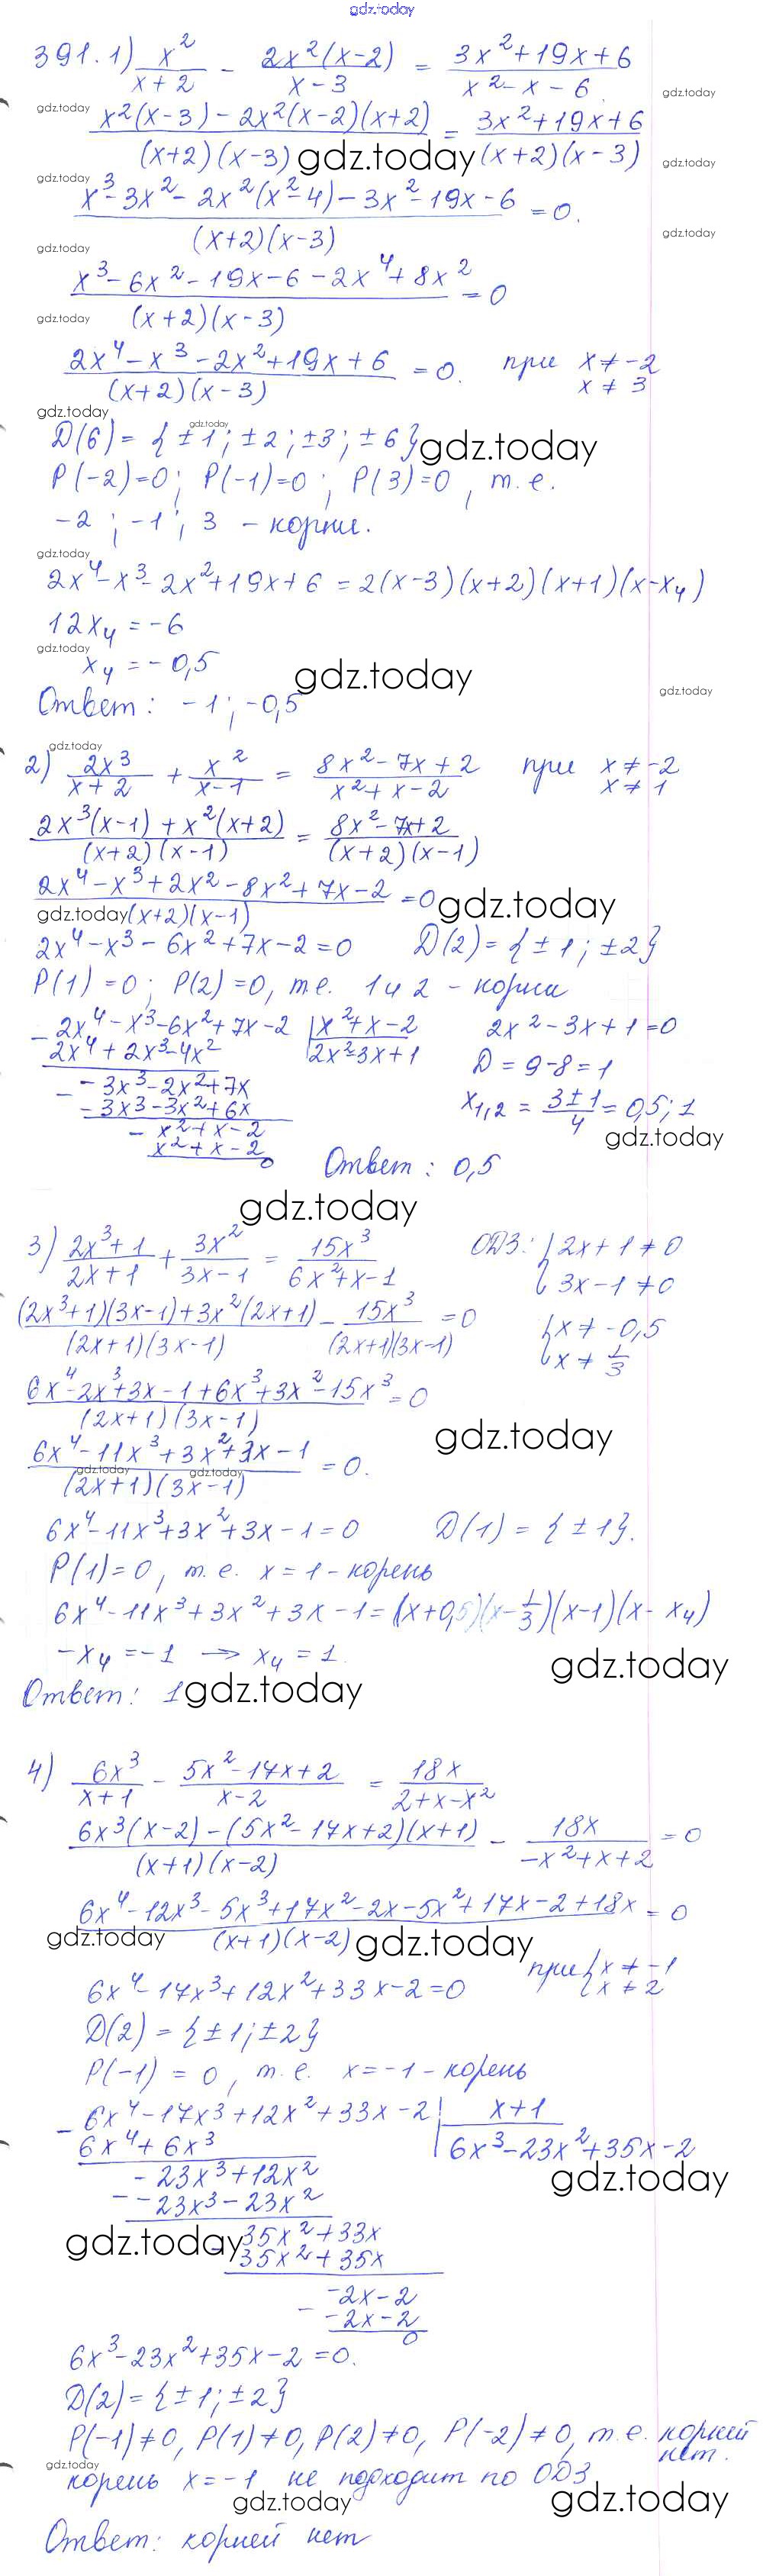 gdz.today
391. 1) x²/(x+2) - 2x²(x-2)/(x-3) = (3x²+19x+6)/(x²-x-6)
gdz.today
gdz.today
(x²(x-3) - 2x²(x-2)(x+2))/((x+2)(x-3)) = (3x²+19x+6)/((x+2)(x-3))
gdz.today
gdz.today
gdz.today
(x³-3x²-2x²(x²-4)-3x²-19x-6)/((x+2)(x-3)) = 0.
gdz.today
gdz.today
(x³-6x²-19x-6-2x⁴+8x²)/((x+2)(x-3)) = 0
gdz.today
(2x⁴-x³-2x²+19x+6)/((x+2)(x-3)) = 0. при x≠-2 x≠3
gdz.today
gdz.today
D(6) = {±1; ±2; ±3; ±6}
gdz.today
P(-2)=0; P(-1)=0; P(3)=0, т.е.
-2; -1; 3 - корни.
gdz.today
2x⁴-x³-2x²+19x+6 = 2(x-3)(x+2)(x+1)(x-x₄)
12x₄ = -6
gdz.today
x₄ = -0,5
gdz.today
gdz.today
Ответ: -1; -0,5
gdz.today
2) 2x³/(x+2) + x²/(x-1) = (8x²-7x+2)/(x²+x-2) при x≠-2 x≠1
(2x³(x-1)+x²(x+2))/((x+2)(x-1)) = (8x²-7x+2)/((x+2)(x-1))
(2x⁴-x³+2x²-8x²+7x-2)/((x+2)(x-1)) = 0
gdz.today
gdz.today
2x⁴-x³-6x²+7x-2=0 D(2)={±1; ±2}
P(1)=0; P(2)=0, т.е. 1 и 2 - корни
-2x⁴-x³-6x²+7x-2 | x²+x-2 2x²-3x+1=0
2x⁴+2x³-4x² 2x²-3x+1 D=9-8=1
- -3x³-2x²+7x
-3x³-3x²+6x x₁,₂ = (3±1)/4 = 0,5; 1
- x²+x-2
gdz.today
x²+x-2
0
Ответ: 0,5
gdz.today
3) (2x³+1)/(2x+1) + 3x²/(3x-1) = 15x³/(6x²+x-1) ОДЗ: {2x+1≠0 3x-1≠0
((2x³+1)(3x-1)+3x²(2x+1))/((2x+1)(3x-1)) - 15x³/((2x+1)(3x-1)) = 0 {x≠-0,5 x≠1/3
(6x⁴-2x³+3x-1+6x³+3x²-15x³)/((2x+1)(3x-1)) = 0
gdz.today
(6x⁴-11x³+3x²+3x-1)/((2x+1)(3x-1)) = 0.
gdz.today
gdz.today
6x⁴-11x³+3x²+3x-1=0 D(1)={±1}.
P(1)=0, т.е. x=1 - корень
6x⁴-11x³+3x²+3x-1=(x+0,5)(x-1/3)(x-1)(x-x₄)
-x₄=-1 → x₄=1.
gdz.today
Ответ: 1
gdz.today
4) 6x³/(x+1) - (5x²-17x+2)/(x-2) = 18x/(2+x-x²)
(6x³(x-2)-(5x²-17x+2)(x+1))/((x+1)(x-2)) - 18x/(-x²+x+2) = 0
(6x⁴-12x³-5x³+17x²-2x-5x²+17x-2+18x)/((x+1)(x-2)) = 0
gdz.today
gdz.today
при {x≠-1 x≠2
6x⁴-17x³+12x²+33x-2=0
D(2)={±1; ±2}
P(-1)=0, т.е. x=-1 - корень
-6x⁴-17x³+12x²+33x-2 | x+1
6x⁴+6x³ 6x³-23x²+35x-2
-23x³+12x²
gdz.today
- -23x³-23x²
gdz.today
35x²+33x
35x²+35x
-2x-2
- -2x-2
0
6x³-23x²+35x-2=0.
D(2)={±1; ±2}
P(-1)≠0, P(1)≠0, P(2)≠0, P(-2)≠0, т.е. корней
нет.
gdz.today
корень x=-1 не подходит по ОДЗ
gdz.today
gdz.today
Ответ: корней нет